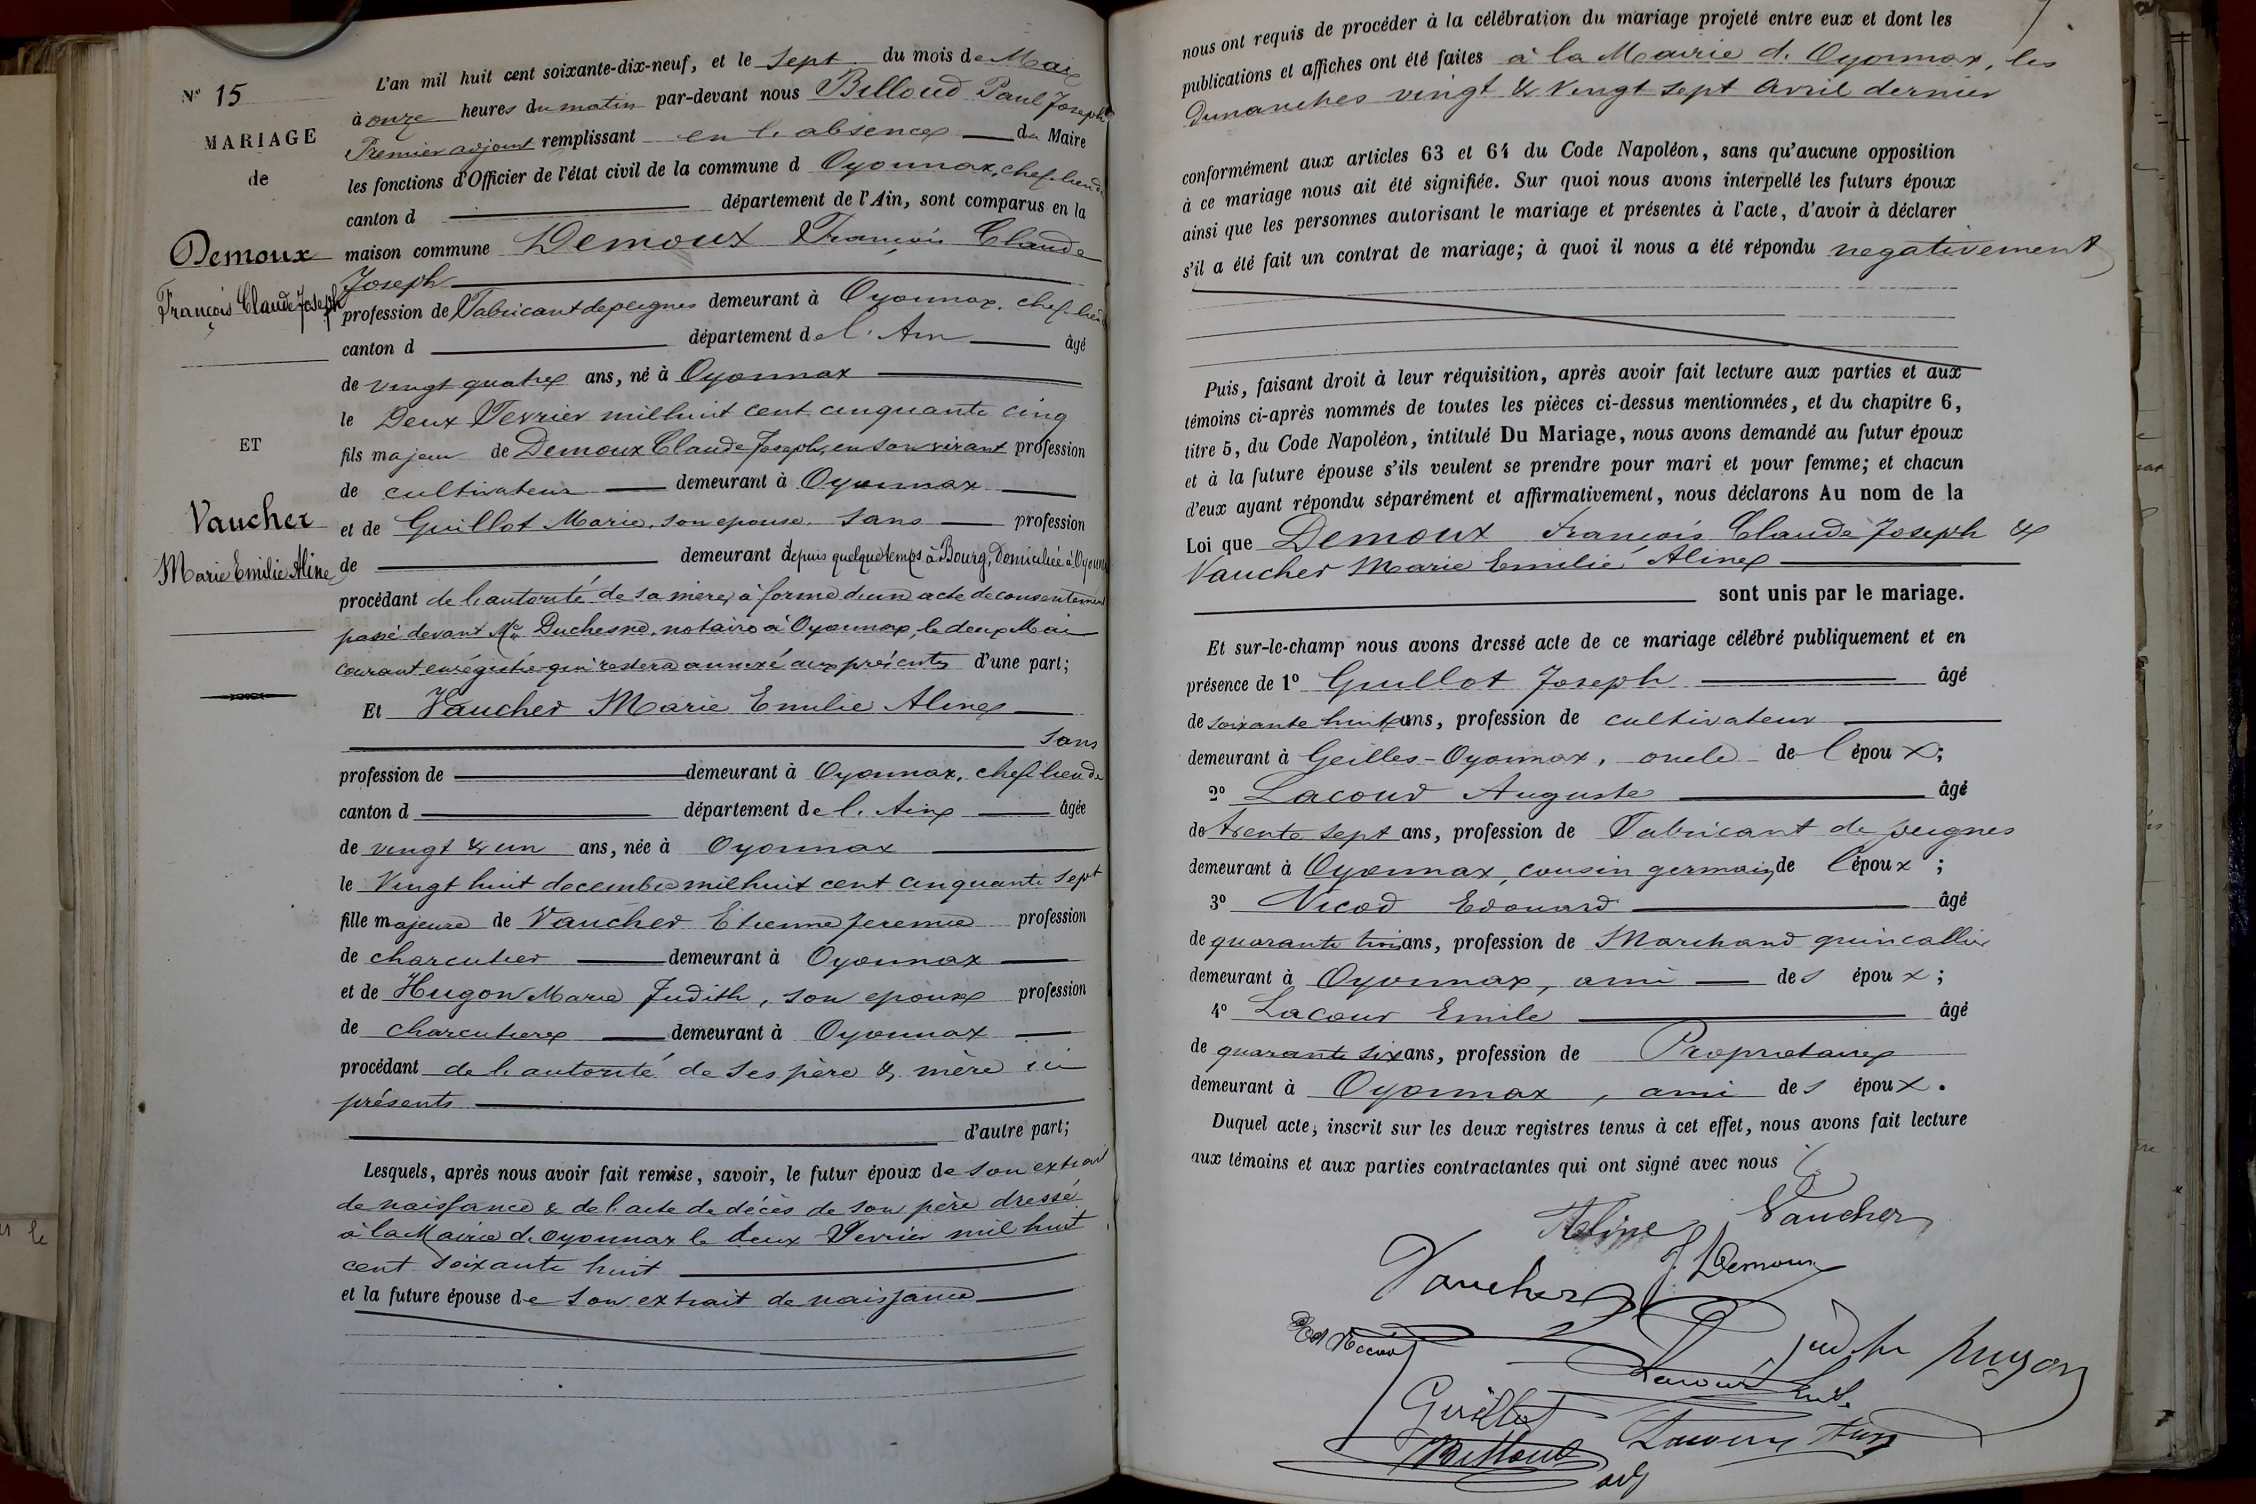 N° 15
MARIAGE
de
Demoux
François Claude Joseph
ET
Vaucher
Marie Emilie Aline
L'an mil huit cent soixante-dix-neuf, et le sept du mois de Mai
à onze heures du matin par-devant nous Billoud Paul Joseph
Premier adjoint remplissant en l'absence du Maire
les fonctions d'Officier de l'état civil de la commune d Oyonnax, chef-lieu de
canton d département de l'Ain, sont comparus en la
maison commune Demoux François Claude
Joseph
profession de Fabricant de peignes demeurant à Oyonnax, chef-lieu
canton d département de l'Ain âgé
de vingt quatre ans, né à Oyonnax
le Deux Fevrier mil huit cent cinquante cinq
fils majeur de Demoux Claude Joseph, en son vivant profession
de cultivateur demeurant à Oyonnax
et de Guillot Marie, son epouse, sans profession
de demeurant depuis quelque temps à Bourg, Domiciliée à Oyonnax
procédant de l'autorité de sa mère, à forme d'un acte de consentement
passé devant Me Duchesne, notaire à Oyonnax, le deux Mai
courant enrégistré qui restera annexé aux présentes d'une part;
Et Vaucher Marie Emilie Aline
sans
profession de demeurant à Oyonnax, chef-lieu de
canton d département de l'Ain âgée
de vingt & un ans, née à Oyonnax
le Vingt huit decembre mil huit cent cinquante sept
fille majeure de Vaucher Etienne Jeremie profession
de charcutier demeurant à Oyonnax
et de Hugon Marie Judith, son epouse profession
de charcutiere demeurant à Oyonnax
procédant de l'autorité de ses père & mère ici
présents
d'autre part;
Lesquels, après nous avoir fait remise, savoir, le futur époux de son extrait
de naissance & de l'acte de décès de son père dressé
à la Mairie d'Oyonnax le deux Fevrier mil huit
cent soixante huit
et la future épouse de son extrait de naissance
nous ont requis de procéder à la célébration du mariage projeté entre eux et dont les
publications et affiches ont été faites à la Mairie d'Oyonnax, les
Dimanches vingt & vingt sept Avril dernier
conformément aux articles 63 et 64 du Code Napoléon, sans qu'aucune opposition
à ce mariage nous ait été signifiée. Sur quoi nous avons interpellé les futurs époux
ainsi que les personnes autorisant le mariage et présentes à l'acte, d'avoir à déclarer
s'il a été fait un contrat de mariage; à quoi il nous a été répondu negativement
Puis, faisant droit à leur réquisition, après avoir fait lecture aux parties et aux
témoins ci-après nommés de toutes les pièces ci-dessus mentionnées, et du chapitre 6,
titre 5, du Code Napoléon, intitulé Du Mariage, nous avons demandé au futur époux
et à la future épouse s'ils veulent se prendre pour mari et pour femme; et chacun
d'eux ayant répondu séparément et affirmativement, nous déclarons Au nom de la
Loi que Demoux François Claude Joseph &
Vaucher Marie Emilie Aline
sont unis par le mariage.
Et sur-le-champ nous avons dressé acte de ce mariage célébré publiquement et en
présence de 1° Guillot Joseph âgé
de soixante huit ans, profession de cultivateur
demeurant à Geilles-Oyonnax, oncle de l'époux;
2° Lacour Auguste âgé
de trente sept ans, profession de Fabricant de peignes
demeurant à Oyonnax, cousin germain de l'époux;
3° Nicod Edouard âgé
de quarante trois ans, profession de Marchand quincallier
demeurant à Oyonnax, ami des époux;
4° Lacour Emile âgé
de quarante six ans, profession de Propriétaire
demeurant à Oyonnax, ami des époux.
Duquel acte, inscrit sur les deux registres tenus à cet effet, nous avons fait lecture
aux témoins et aux parties contractantes qui ont signé avec nous
Aline Vaucher
Vaucher J Demoux
Ed Nicod Judith hugon
Lacour
Guillot
Billoud adj